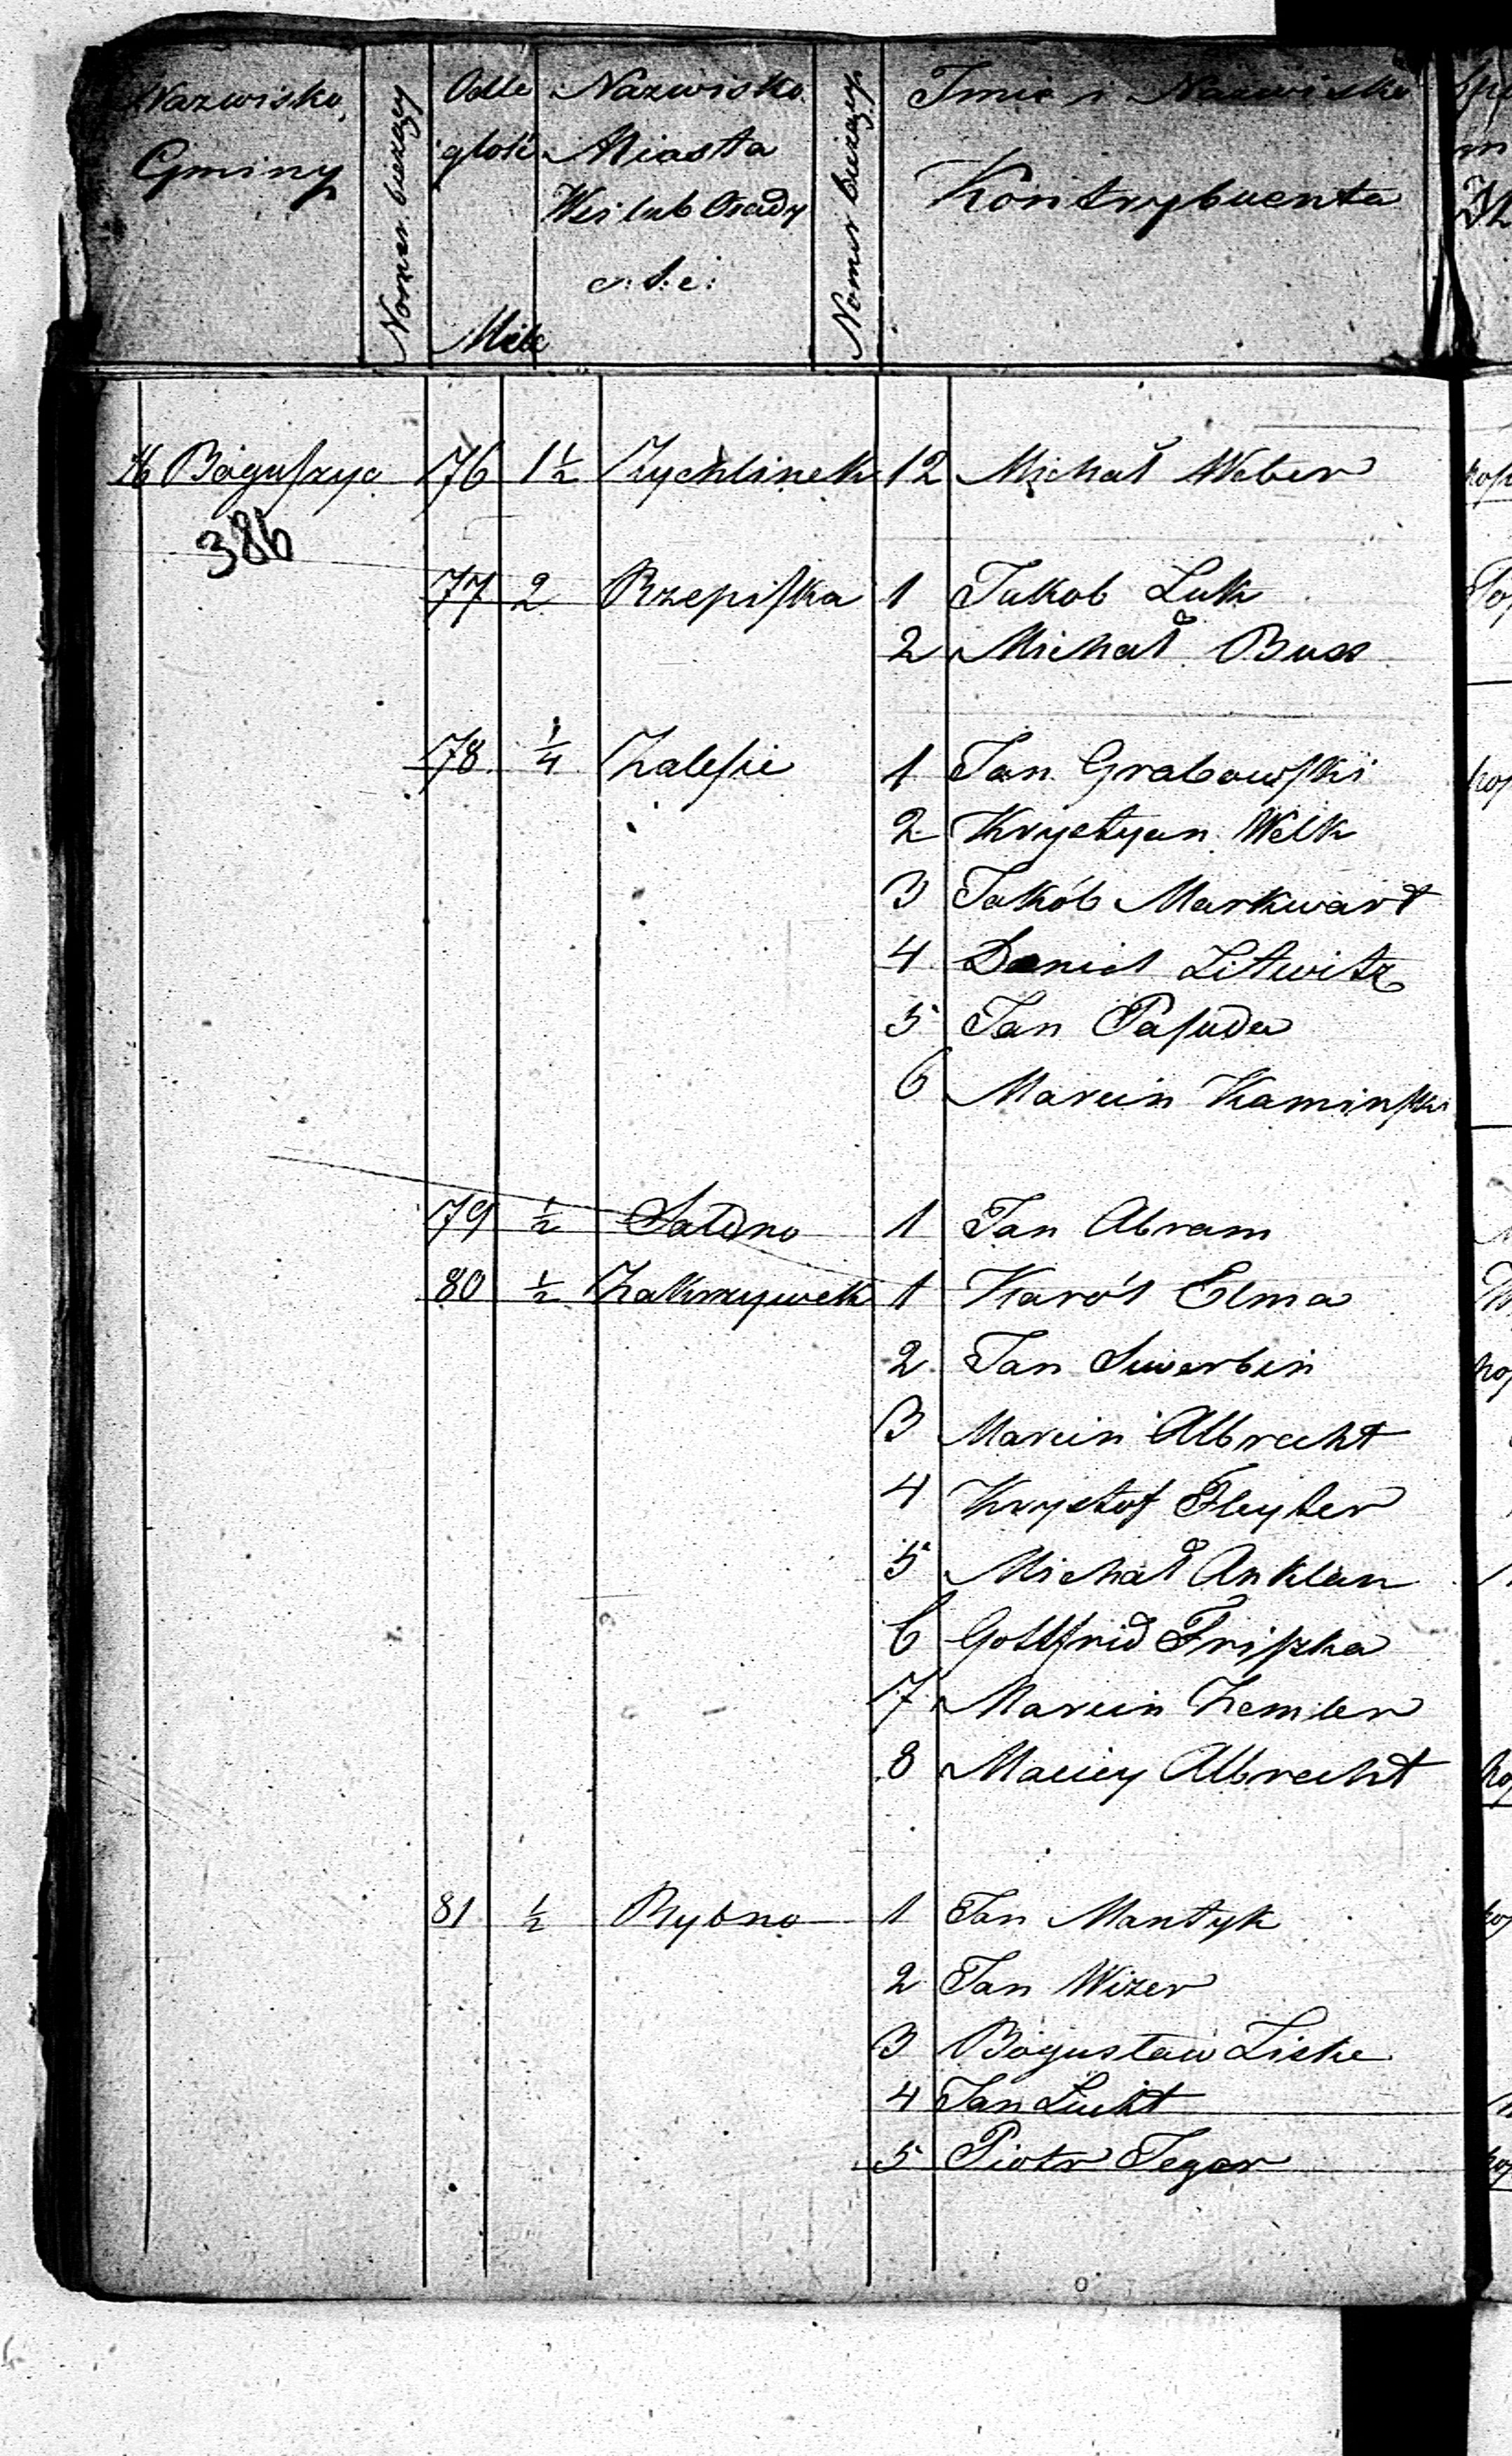 Nazwisko Gminy
Numer bieżący
Odległość Mile
Nazwisko Miasta Wsi lub Osady
Numer bieżący
Imie i Nazwisko Kontrybuenta
Boguſzyc 76 1½ Zychlinek 12 Michał Weber
386
77 2 Rzepiſka 1 Jakob Luk
2 Michał Buss
78 ¼ Zaleſie 1 Jan Grabowſki
2 Krystyan Welk
3 Jakób Markwart
4 Daniel Litwitz
5 Jan Paſuda
6 Marcin Kaminſki
79 ½ Sałdno 1 Jan Abram
80 ½ Zakrzywek 1 Karól Elma
2 Jan Swerbin
3 Marcin Albrecht
4 Krystof Fleyter
5 Michał Anklan
6 Gottfrid Friſzka
7 Marcin Zemler
8 Maciey Albrecht
81 ½ Rybno 1 Jan Mantyk
2 Jan Wizer
3 Bogusław Liske
4 Jan Lucht
5 Piotr Jeger